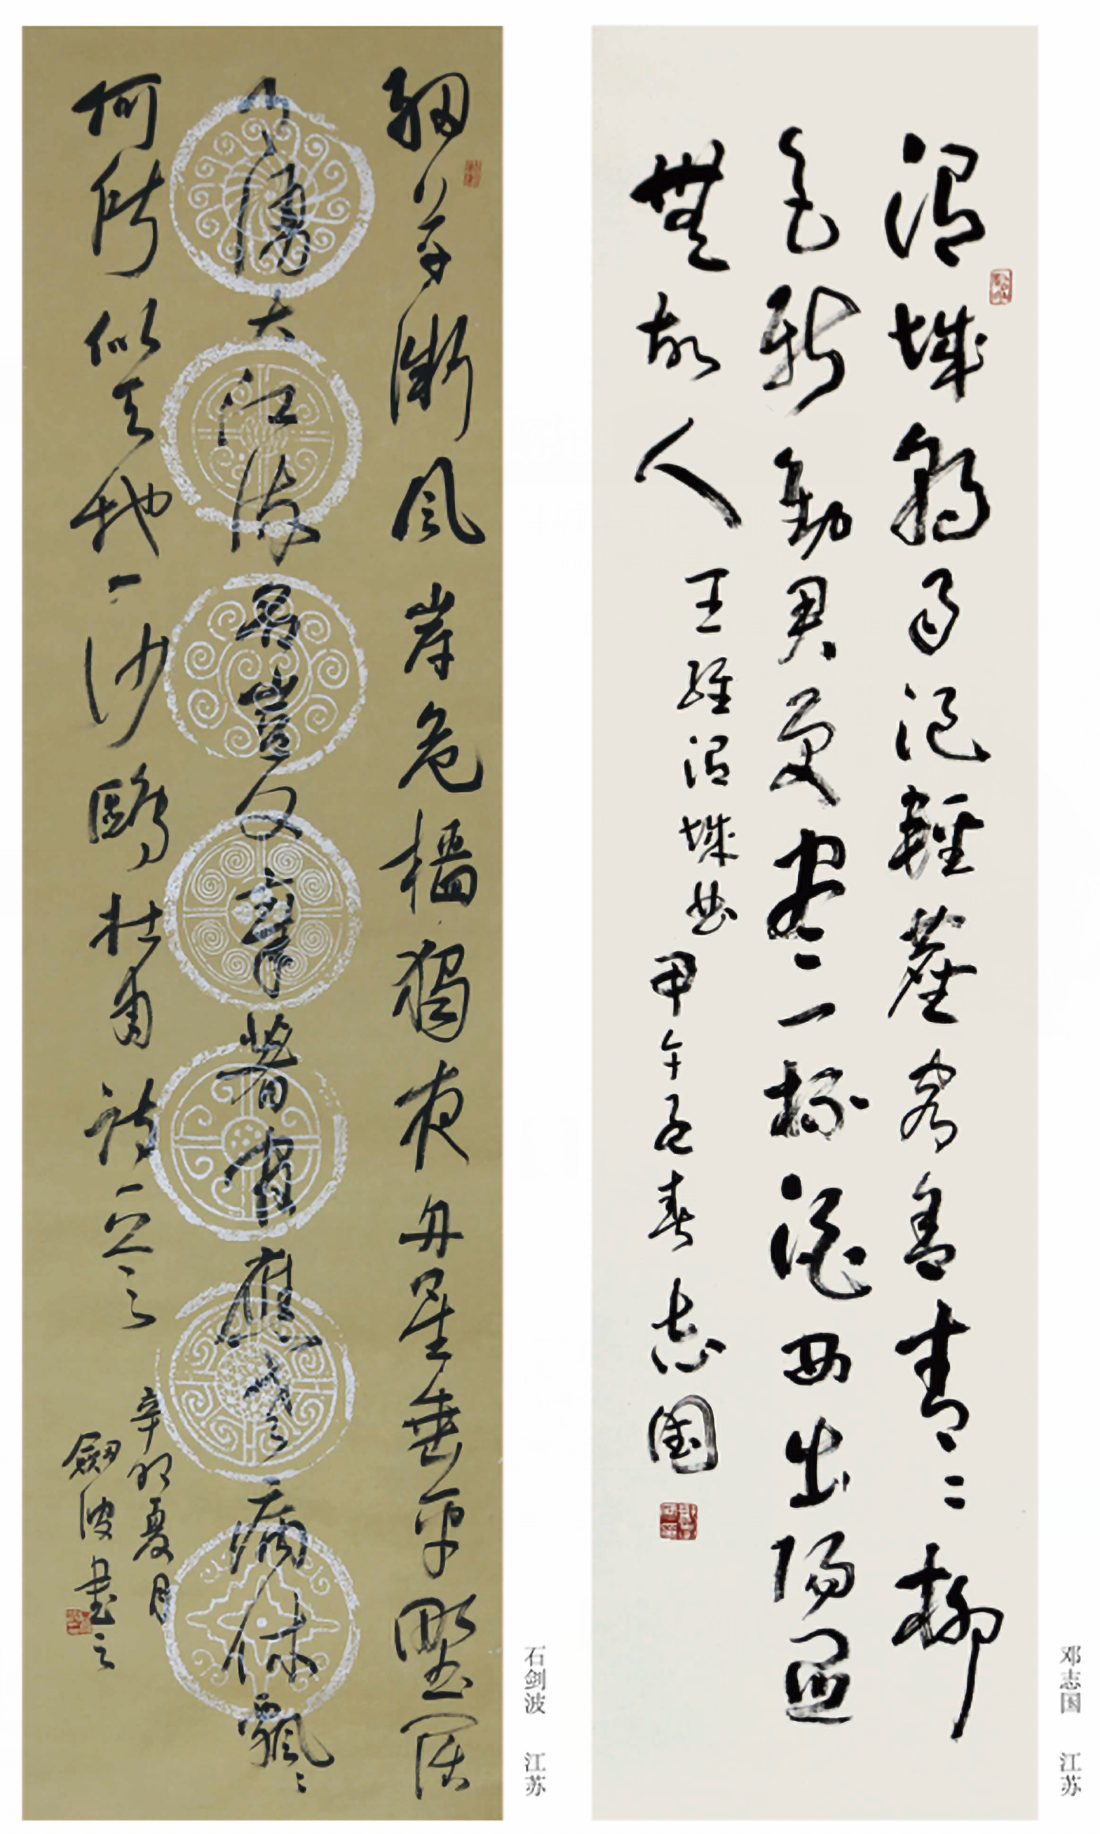 渭城朝雨浥輕塵客舍青〻柳
色新勸君更盡一杯酒西出陽關
無故人
王維渭城曲
甲午孟春 志國
邓志国 江苏
細草微風岸危檣獨夜舟星垂平壄闊
月湧大江流名豈文章著官應老病休飄〻
何所似天地一沙鷗杜甫詩一首
辛卯夏月
劍波書之
石剑波 江苏